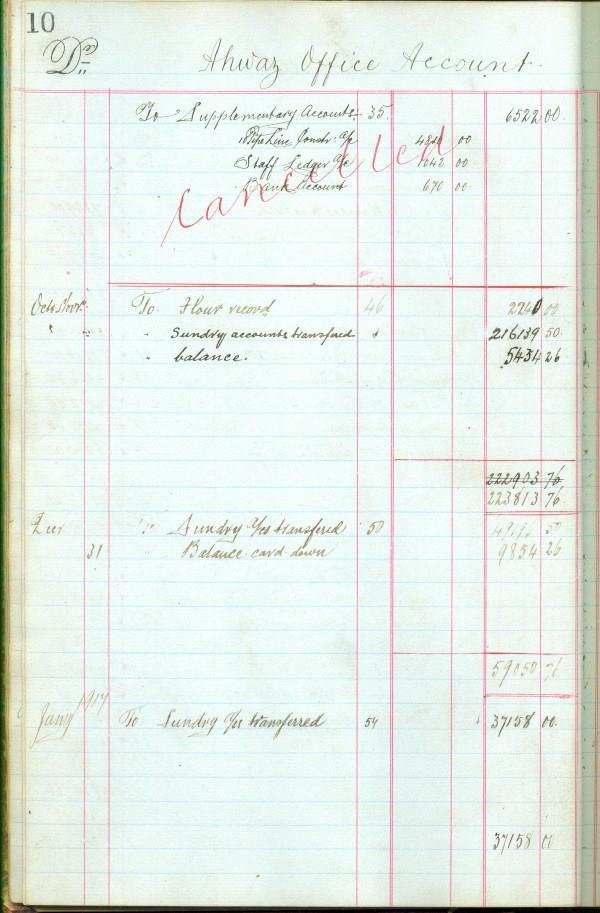 10
Dr Ahwaz Office Account.
To Supplementary Accounts 35. 6522 00.
Pipe Line Constr. A/c 4810 00
Staff Ledger A/c 1042 00
Bank Account 670 00
Cancelled
Oct & Novr. To. Flour record 46 2240 00
" " Sundry accounts transfered " 216139 50.
" balance. 5434 26
222903 76
223813 76.
Decr. To Sundry A/cs transfered 50 49196 50
31 " Balance card down 9854 26
59050 76
1917
Jany To Sundry A/cs transferred 54 37158 00.
37158 00